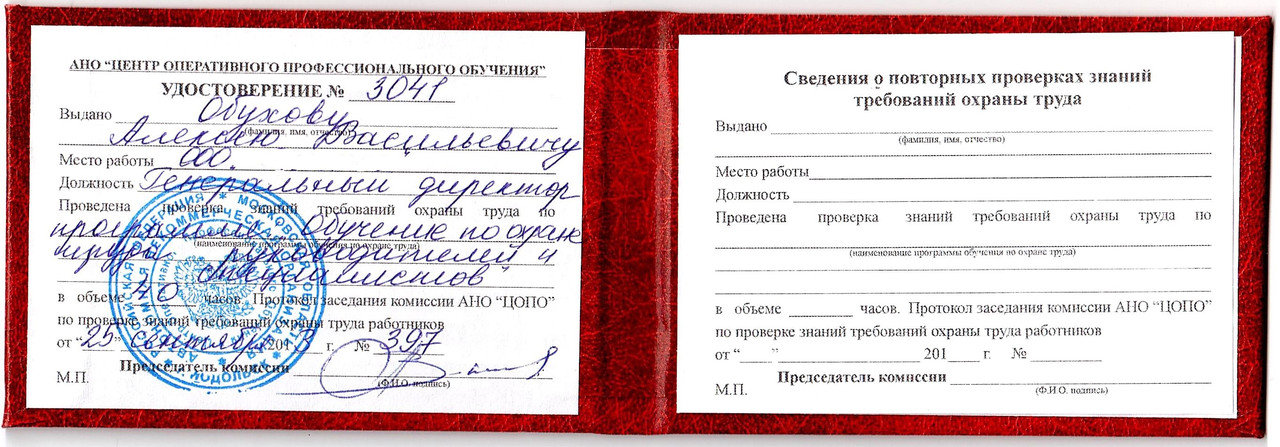 АНО “ЦЕНТР ОПЕРАТИВНОГО ПРОФЕССИОНАЛЬНОГО ОБУЧЕНИЯ”
УДОСТОВЕРЕНИЕ № 3041
Выдано Обухову
(фамилия, имя, отчество)
Алексею Васильевичу
Место работы ООО.
Должность Генеральный директор
Проведена проверка знаний требований охраны труда по
программе "Обучение по охране
(наименование программы обучения по охране труда)
труда руководителей и
специалистов"
в объеме 40 часов. Протокол заседания комиссии АНО “ЦОПО”
по проверке знаний требований охраны труда работников
от “25” сентября 2013 г. № 397
Председатель комиссии
М.П.
(Ф.И.О. подпись)
Сведения о повторных проверках знаний
требований охраны труда
Выдано
(фамилия, имя, отчество)
Место работы
Должность
Проведена проверка знаний требований охраны труда по
(наименование программы обучения по охране труда)
в объеме часов. Протокол заседания комиссии АНО “ЦОПО”
по проверке знаний требований охраны труда работников
от “ ” 201 г. №
Председатель комиссии
М.П.
(Ф.И.О. подпись)